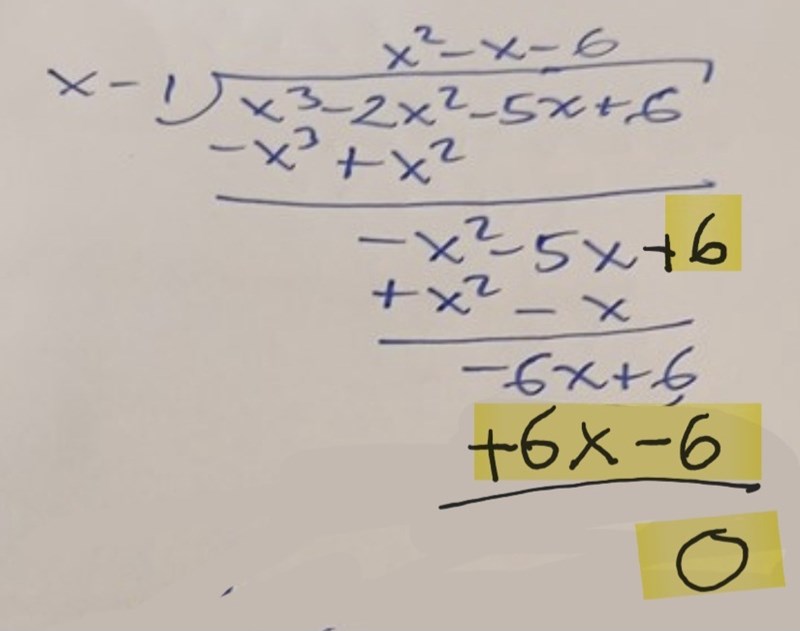 x² - x - 6
x - 1) x³ - 2x² - 5x + 6
-x³ + x²
-x² - 5x + 6
+ x² - x
-6x + 6
+6x - 6
0